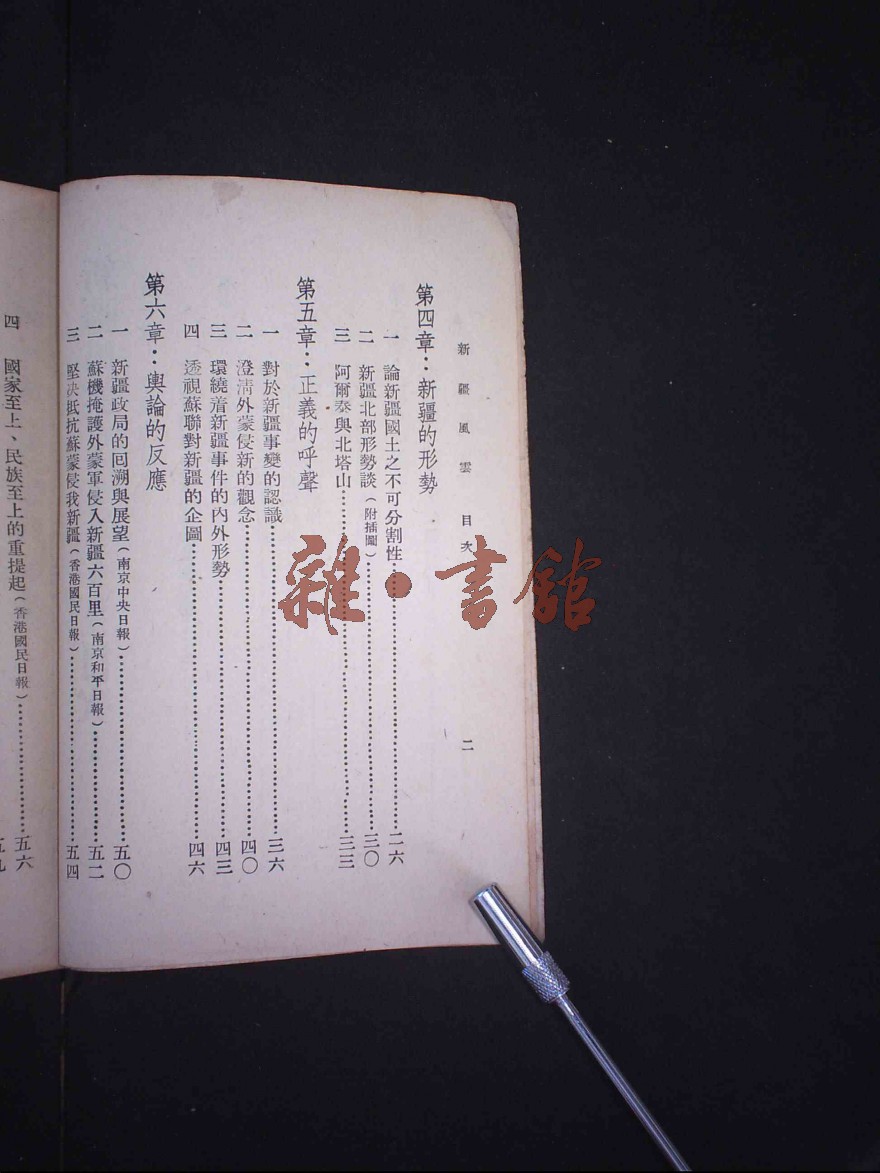 新疆風雲 目次 二
第四章：新疆的形勢
一 論新疆國土之不可分割性……二六
二 新疆北部形勢談（附插圖）……三〇
三 阿爾泰與北塔山……三三
第五章：正義的呼聲
一 對於新疆事變的認識……三六
二 澄清外蒙侵新的觀念……四〇
三 環繞着新疆事件的內外形勢……四三
四 透視蘇聯對新疆的企圖……四六
第六章：輿論的反應
一 新疆政局的回溯與展望（南京中央日報）……五〇
二 蘇機掩護外蒙軍侵入新疆六百里（南京和平日報）……五二
三 堅決抵抗蘇蒙侵我新疆（香港國民日報）……五四
四 國家至上、民族至上的重提起（香港國民日報）……五六
雜·書館